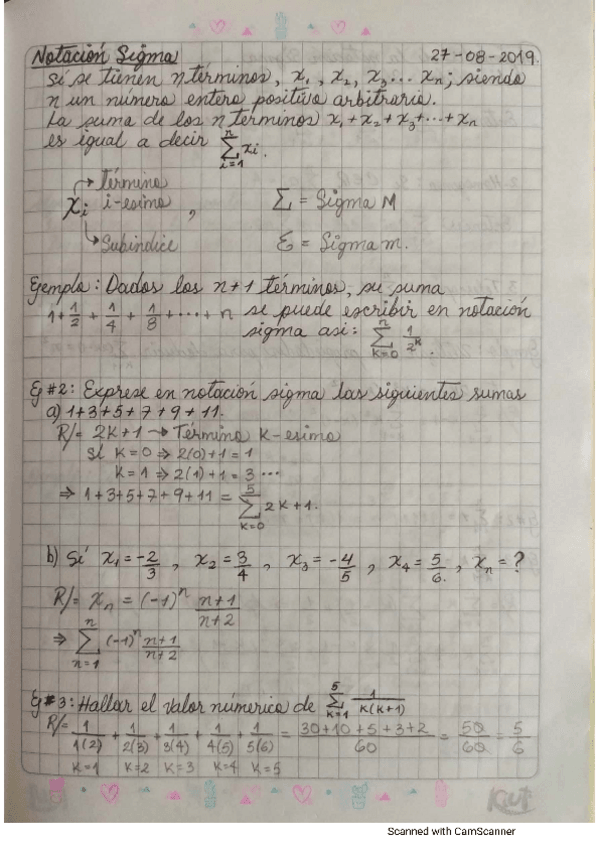 Notación Sigma 27-08-2019.
Si se tienen n términos, x₁, x₂, x₃... xₙ; siendo
n un número entero positivo arbitrario.
La suma de los n terminos x₁+x₂+x₃+...+xₙ
es igual a decir ∑ᵢ₌₁ⁿ xᵢ.
→ término
xᵢ i-esimo , Σ = Sigma M
→ Subíndice Ɛ = Sigma m.
Ejemplo: Dados los n+1 términos, su suma
1 + 1/2 + 1/4 + 1/8 + ... + n se puede escribir en notación
sigma asi: ∑ₖ₌₀ⁿ 1/2ᵏ.
Ej #2: Exprese en notación sigma las siguientes sumas
a) 1+3+5+7+9+11.
R/= 2K+1 → Término K-esimo
Si K=0 ⇒ 2(0)+1 = 1
K=1 ⇒ 2(1)+1 = 3 ...
⇒ 1+3+5+7+9+11 = ∑ₖ₌₀⁵ 2K+1.
b) Si x₁ = -2/3 , x₂ = 3/4 , x₃ = -4/5 , x₄ = 5/6. , xₙ = ?
R/= xₙ = (-1)ⁿ (n+1)/(n+2)
⇒ ∑ₙ₌₁ⁿ (-1)ⁿ (n+1)/(n+2)
Ej #3: Hallar el valor númerico de ∑ₖ₌₁⁵ 1/(K(K+1))
R/= 1/1(2) + 1/2(3) + 1/3(4) + 1/4(5) + 1/5(6) = (30+10+5+3+2)/60 = 50/60 = 5/6
K=1 K=2 K=3 K=4 K=5
Scanned with CamScanner